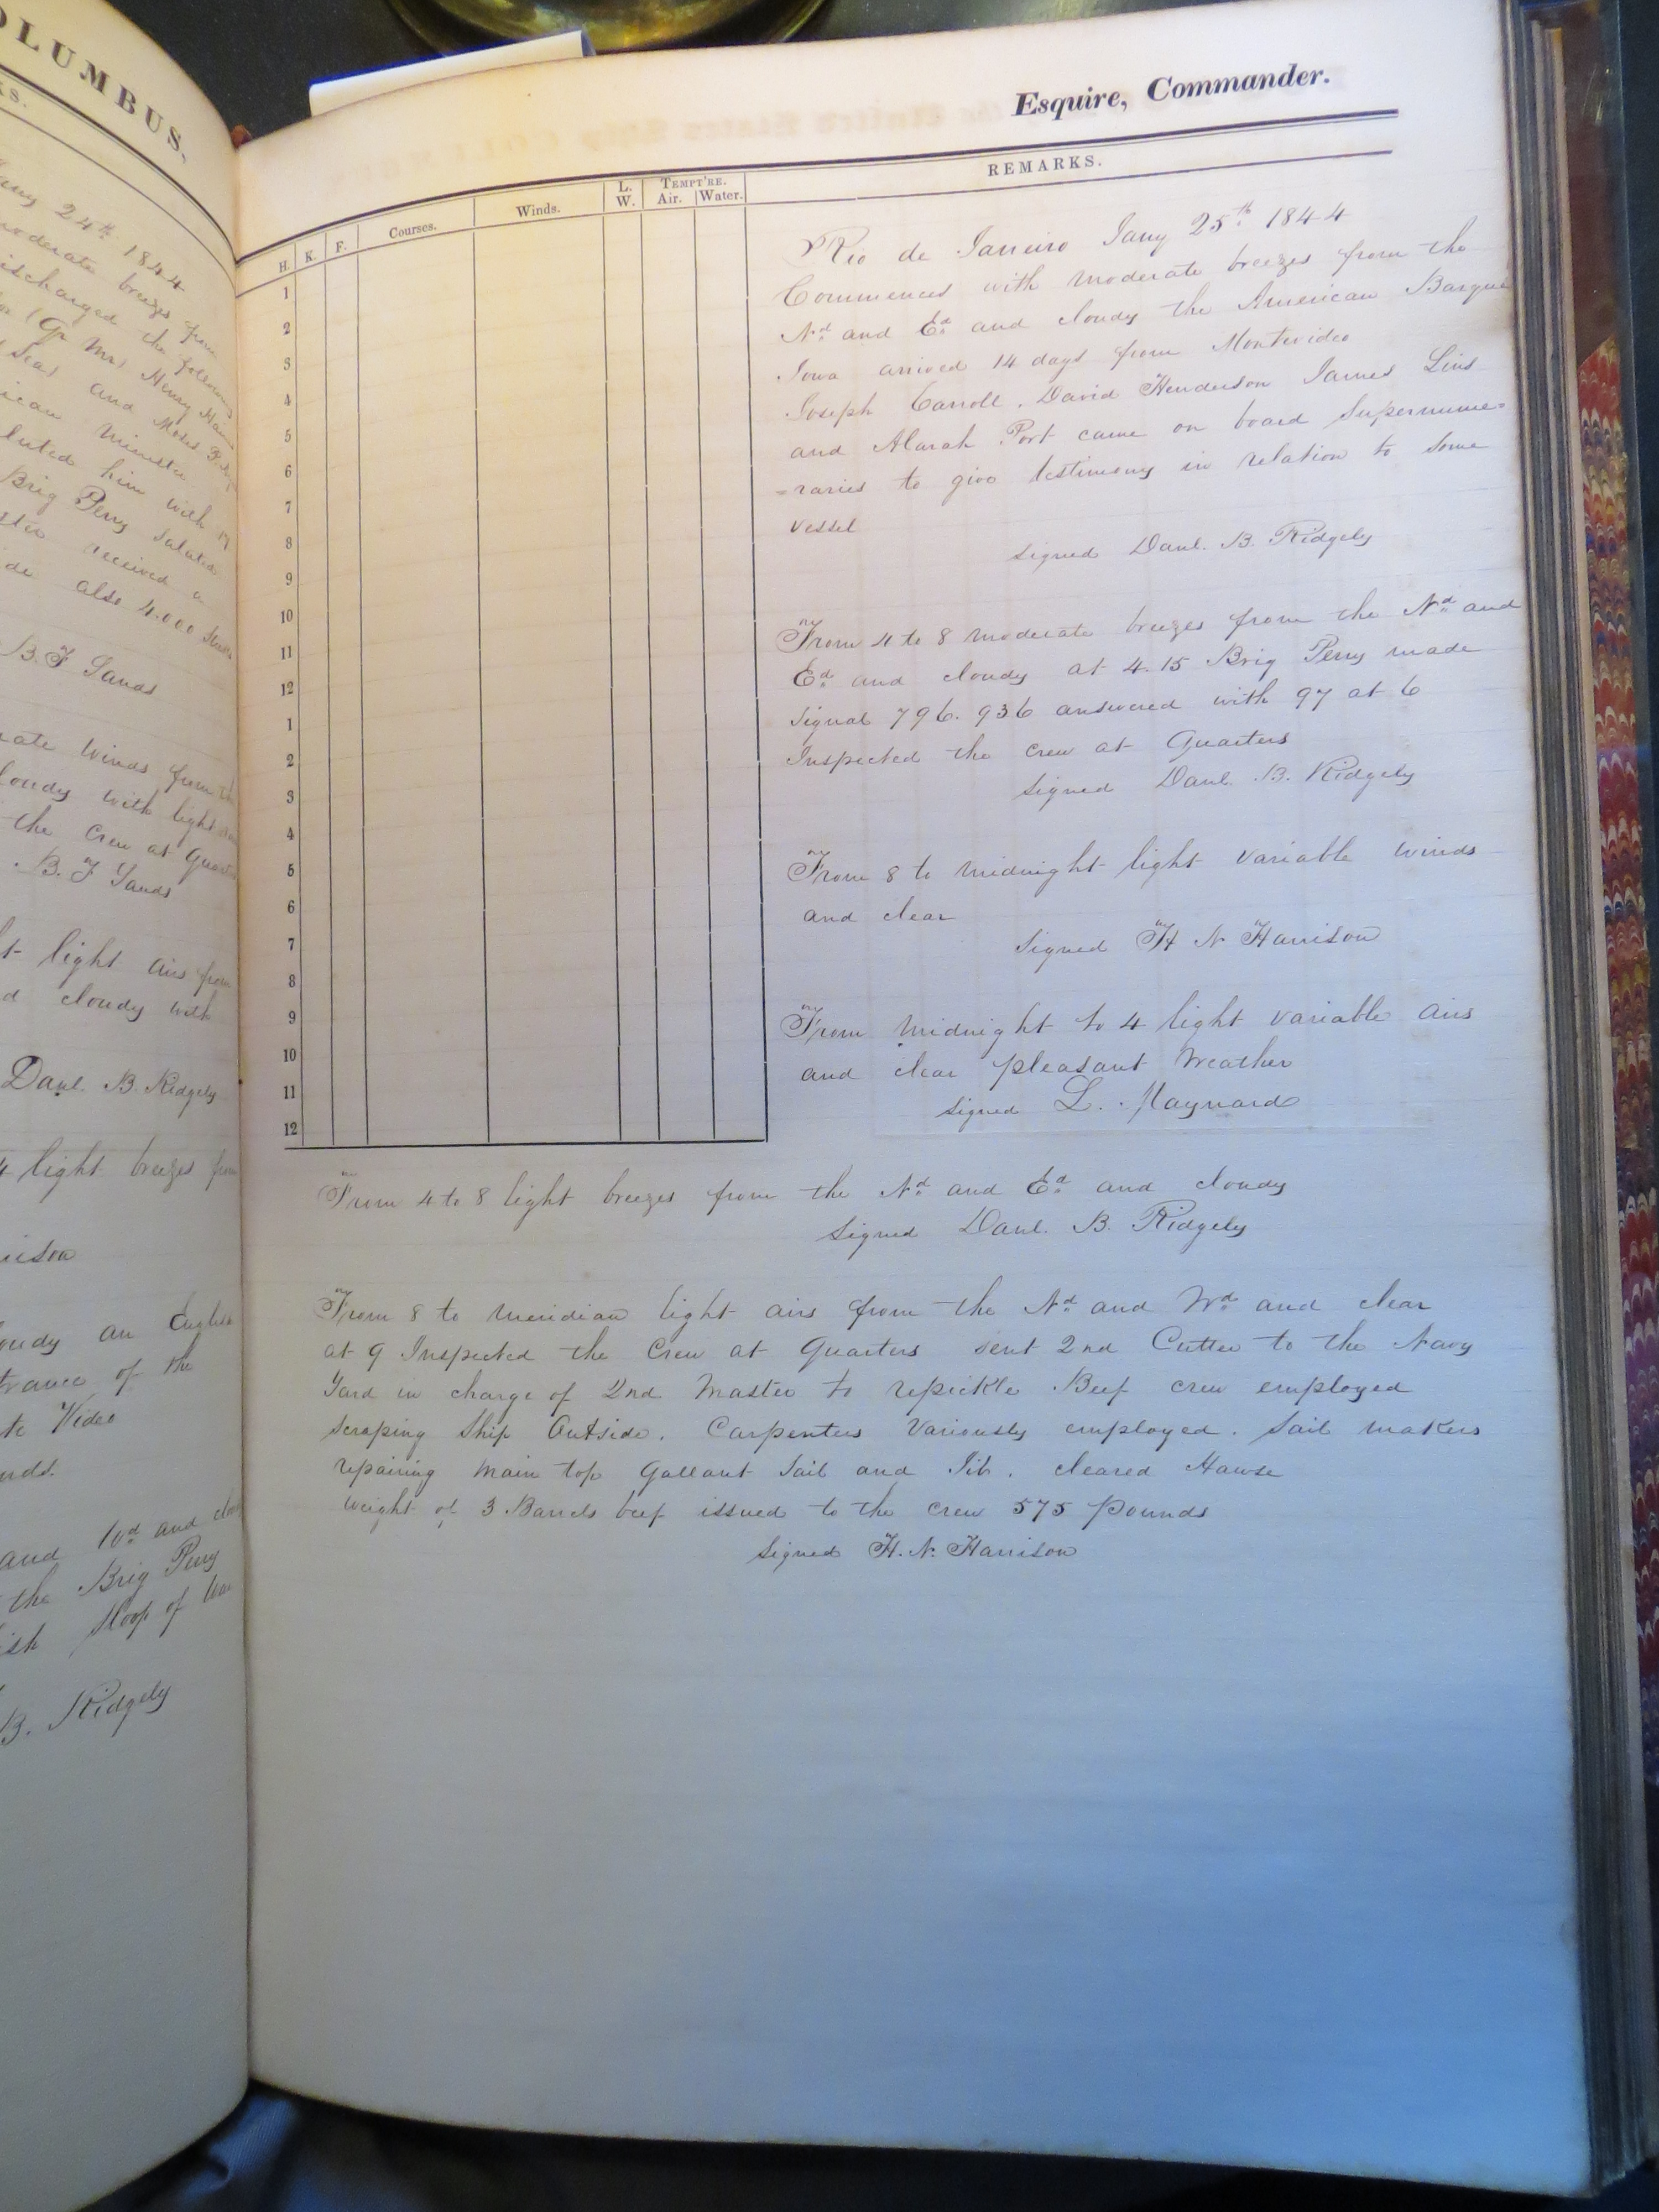 OLUMBUS,
24th 1844
moderate breezes from
discharged the following
(Qr Mr) Henry
Sea) and Moses
Minister
him with 17
Brig Perry Saluted
received a
also 4.000
B. F Sands
Winds from the
cloudy with light
the Crew at Quarters
B. F Sands
light airs from
cloudy with
Danl. B. Ridgely
4 light breezes from
cloudy an English
entrance of the
Video
and Wd and
the Brig Perry
Sloop of War
B. Ridgely
Esquire, Commander.
H. K. F. Courses. Winds. L. W. TEMPT'RE. Air. Water. REMARKS.
1
2
3
4
5
6
7
8
9
10
11
12
1
2
3
4
5
6
7
8
9
10
11
12
Rio de Janeiro Jany 25th 1844
Commences with moderate breezes from the
Nd and Ed and cloudy the American Barque
Iowa arrived 14 days from Montevideo
Joseph Carroll. David Henderson James Lins
and Alarah Port came on board Supernume=
=raries to give testimony in relation to some
vessel
Signed Danl. B. Ridgely
From 4 to 8 moderate breezes from the Nd and
Ed and cloudy at 4.15 Brig Perry made
Signal 796. 936 answered with 97 at 6
Inspected the crew at Quarters
Signed Danl. B. Ridgely
From 8 to midnight light variable winds
and clear
Signed H N Harrison
From midnight to 4 light variable airs
and clear pleasant Weather
Signed L. Maynard
From 4 to 8 light breezes from the Nd and Ed and cloudy
Signed Danl. B. Ridgely
From 8 to meridian light airs from the Nd and Wd and clear
at 9 Inspected the Crew at Quarters sent 2nd Cutter to the Navy
Yard in charge of 2nd Master to repickle Beef crew employed
scraping Ship Outside. Carpenters Variously employed. Sail makers
repairing Main top Gallant Sail and Jib. cleared Hawse
weight of 3 Barrels beef issued to the crew 575 Pounds
Signed H. N. Harrison